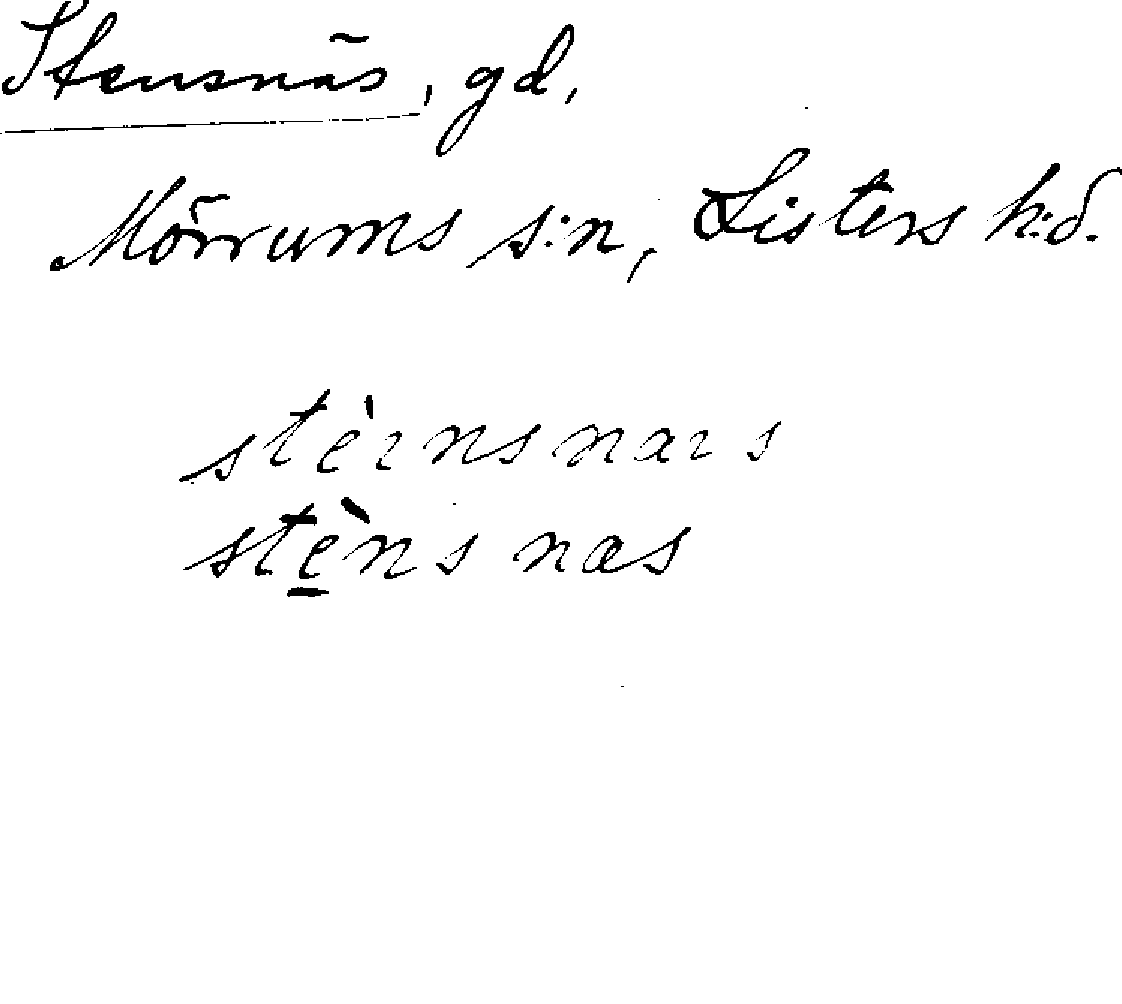 Stensnäs, gd,
Mörrums s:n, Listers h:d.
stèɩnsnaɩs
stè̲nsnæs